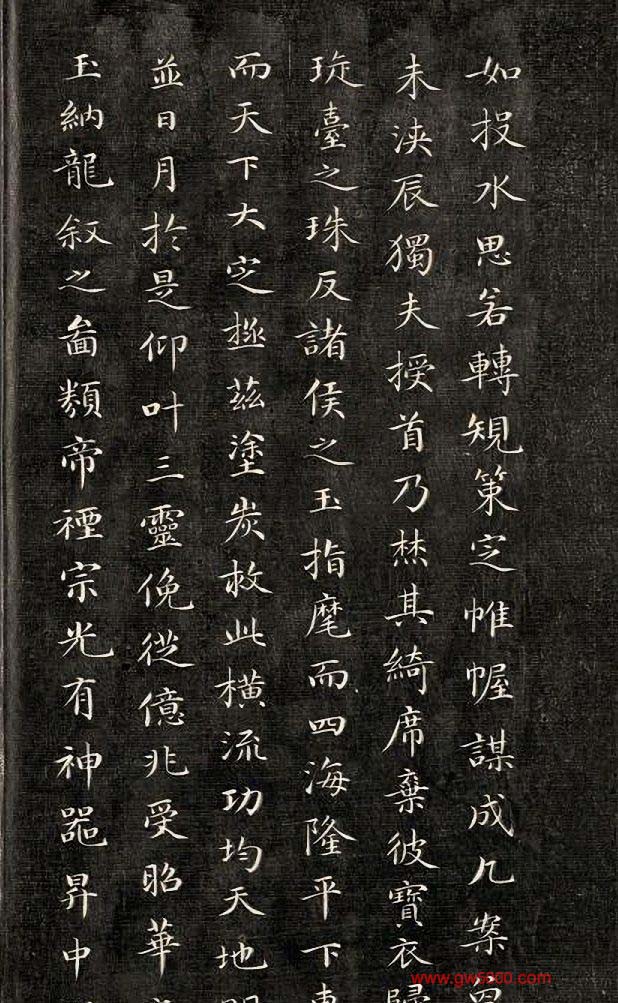 如投水思若轉規策定帷幄謀成几案
未浹辰獨夫授首乃焚其綺席棄彼寶衣歸
琁臺之珠反諸侯之玉指麾而四海隆平下
而天下大定拯茲塗炭救此橫流功均天地
並日月於是仰叶三靈俛從億兆受昭華
玉納龍叙之啚類帝禋宗光有神器昇中
www.gw5600.com